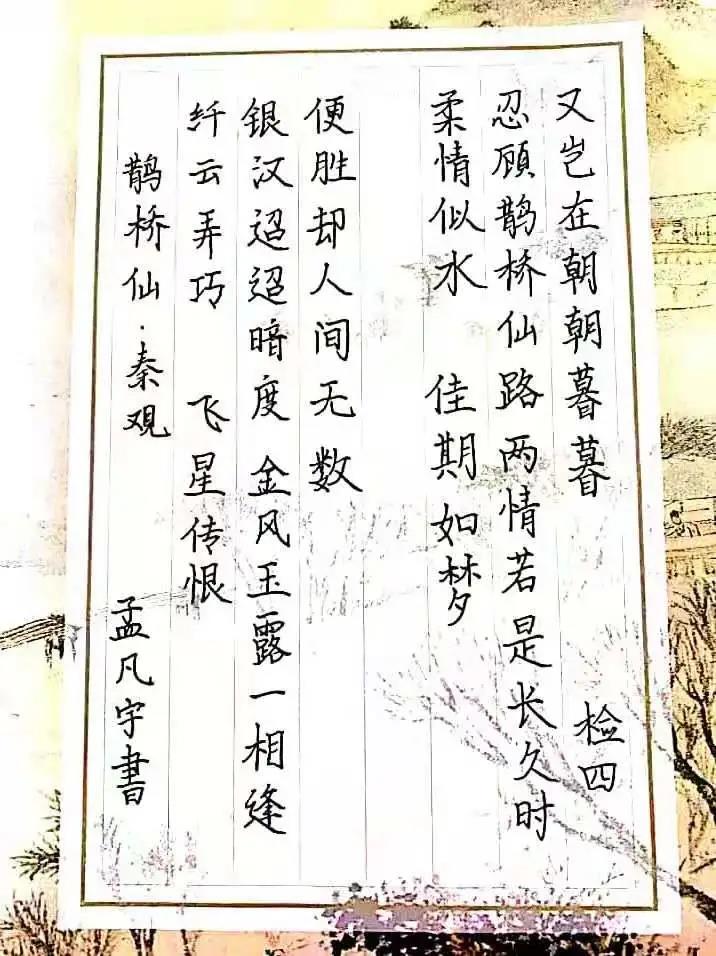 鹊桥仙·秦观
孟凡宇書
纤云弄巧 飞星传恨
银汉迢迢暗度 金风王露一相缝
便胜却人间无数
柔情似水 佳期如梦
忍顾鹊桥仙路两情若是长久时
又岂在朝朝暮暮
检四